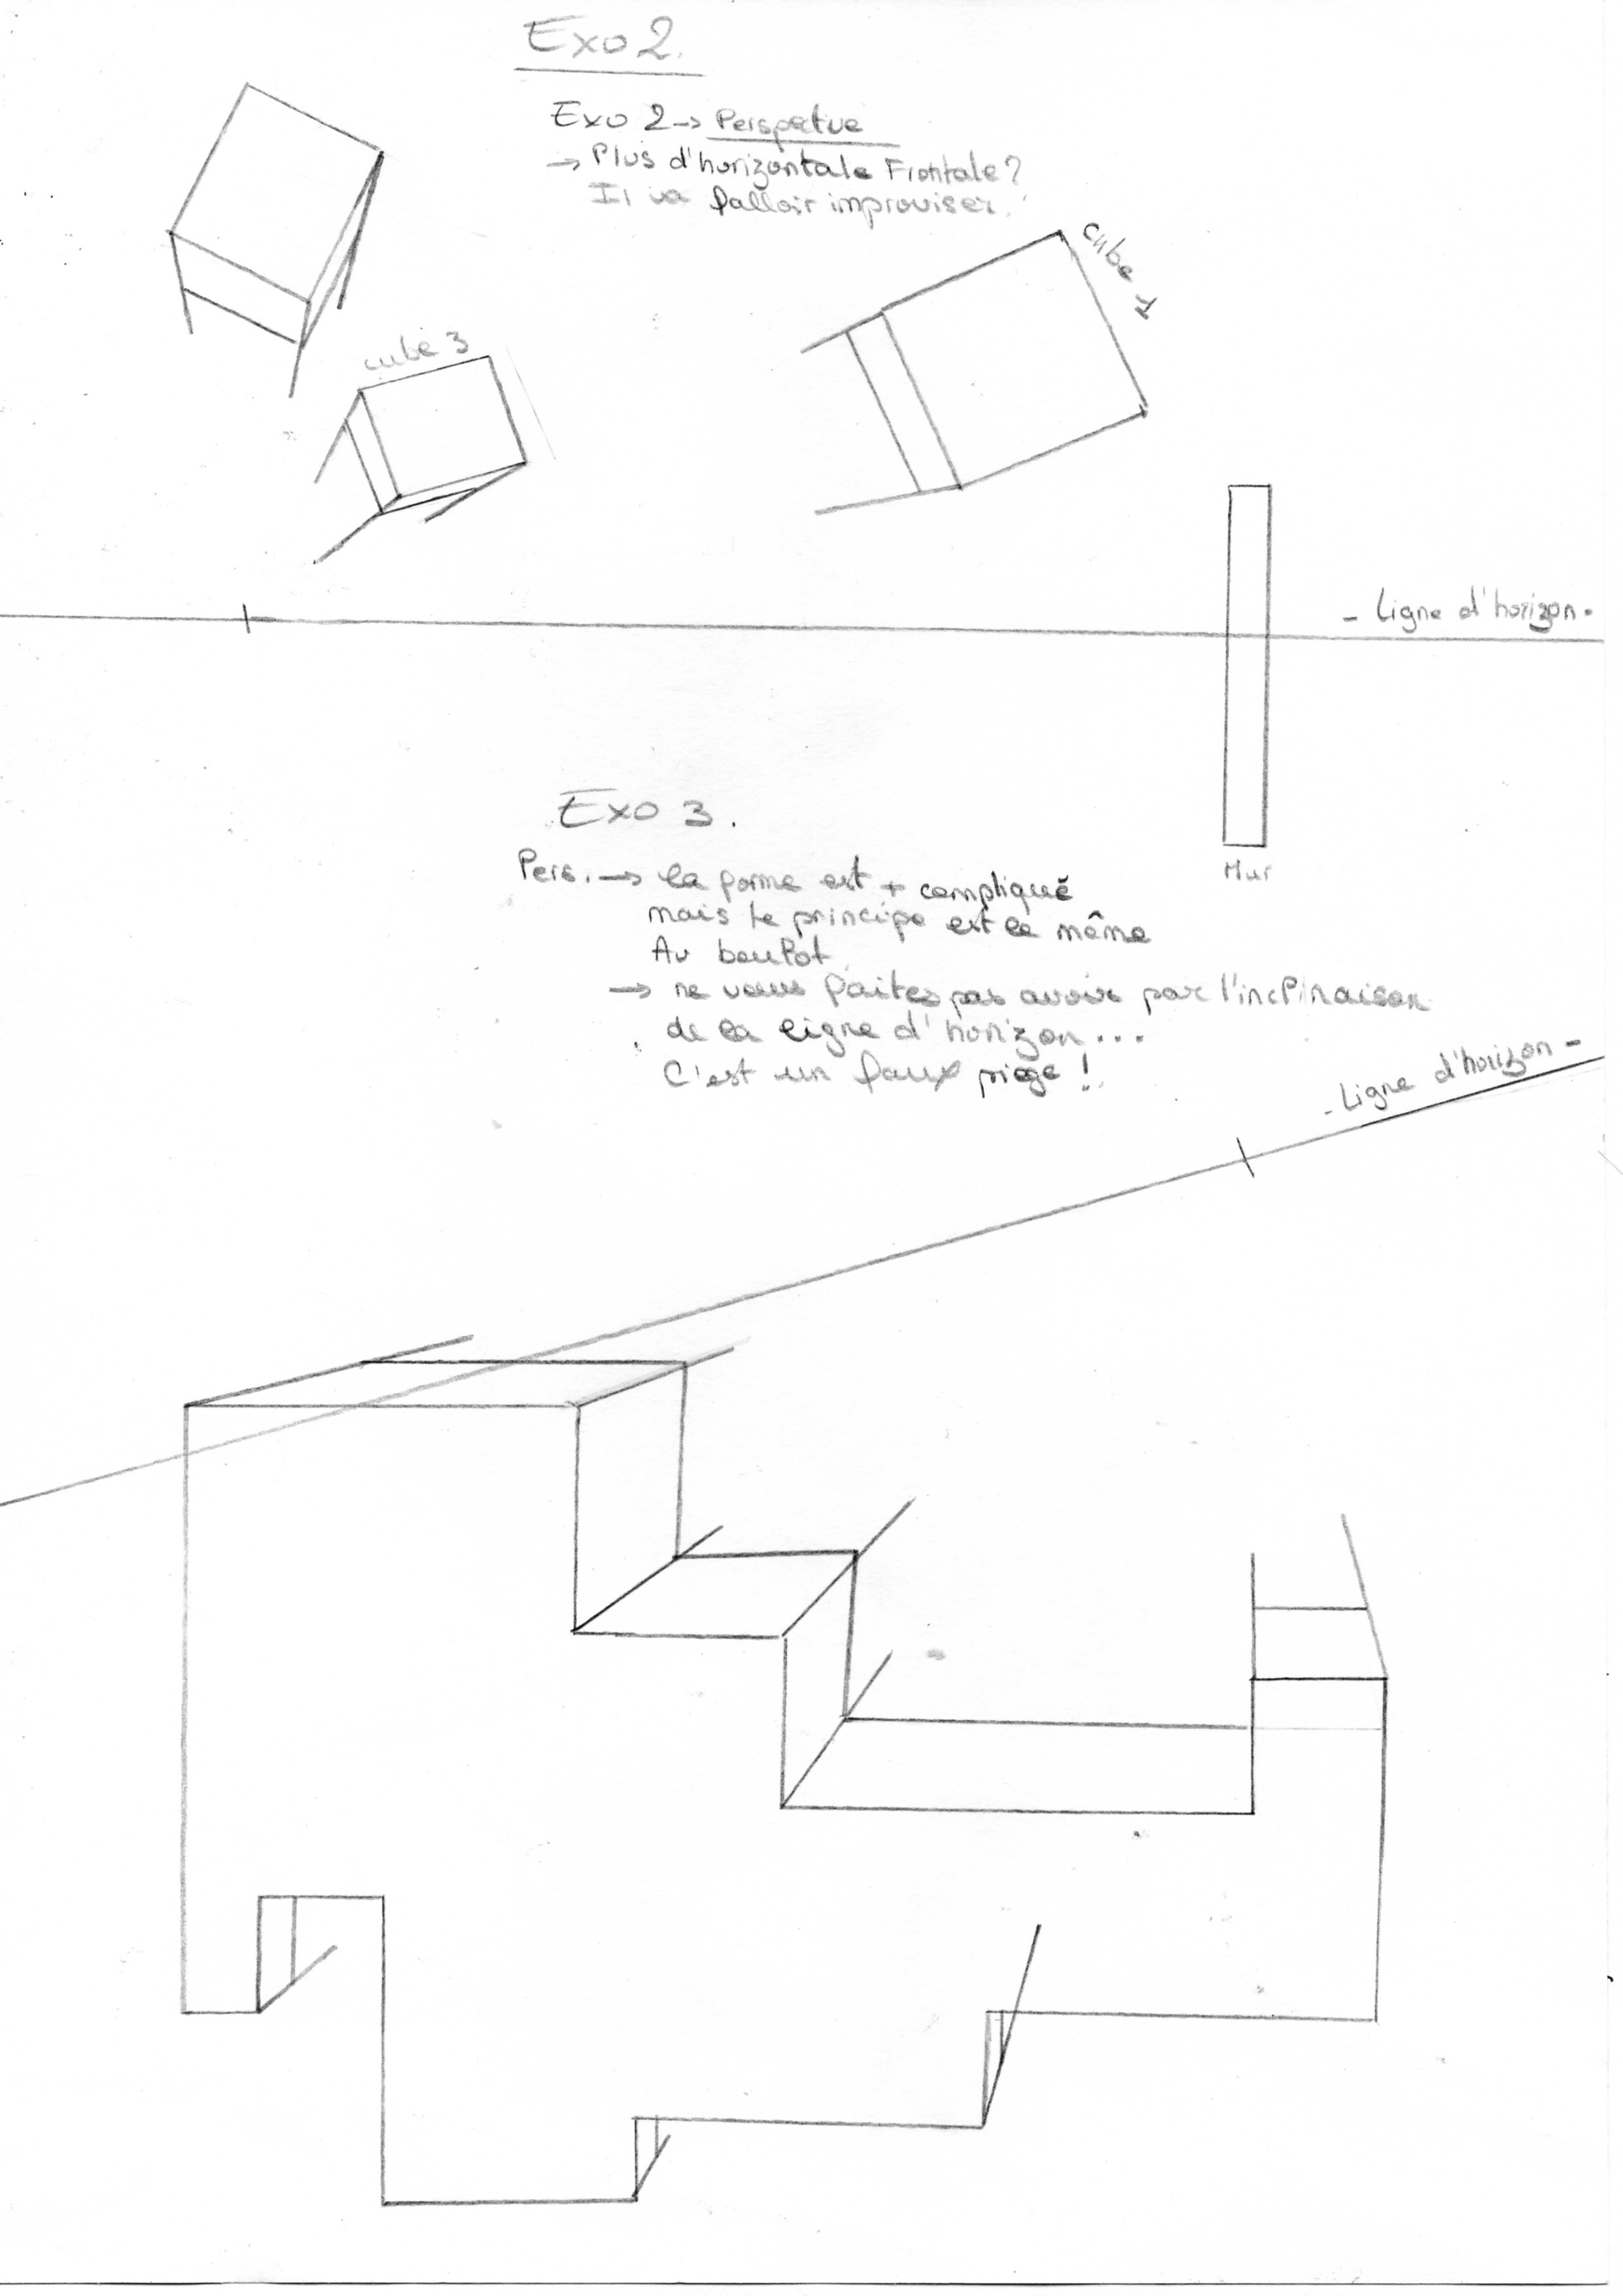 Exo 2.
Exo 2 → Perspetve
→ Plus d'horizontale Frontale?
Il va falloir improviser.
cube 1
cube 3
- Ligne d'horizon -
Mur
Exo 3.
Pers. → la forme est + compliqué
mais le principe est le même
Au boulot
→ ne vous faites pas avoir par l'inclinaison
de la ligne d'horizon...
C'est un faux piège !
- Ligne d'horizon -